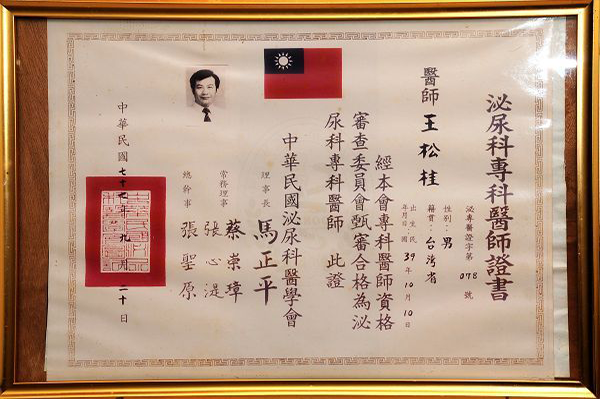 泌尿科專科醫師證書
泌專醫證字第078號
醫師王松桂
性別：男
籍貫：台灣省
出生年月日：民國39年10月10日
經本會專科醫師資格
審查委員會甄審合格為泌
尿科專科醫師　此證
中華民國泌尿科醫學會
理事長　馬正平
常務理事　蔡崇璋
張心湜
總幹事　張聖原
中華民國七十七年九月二十日